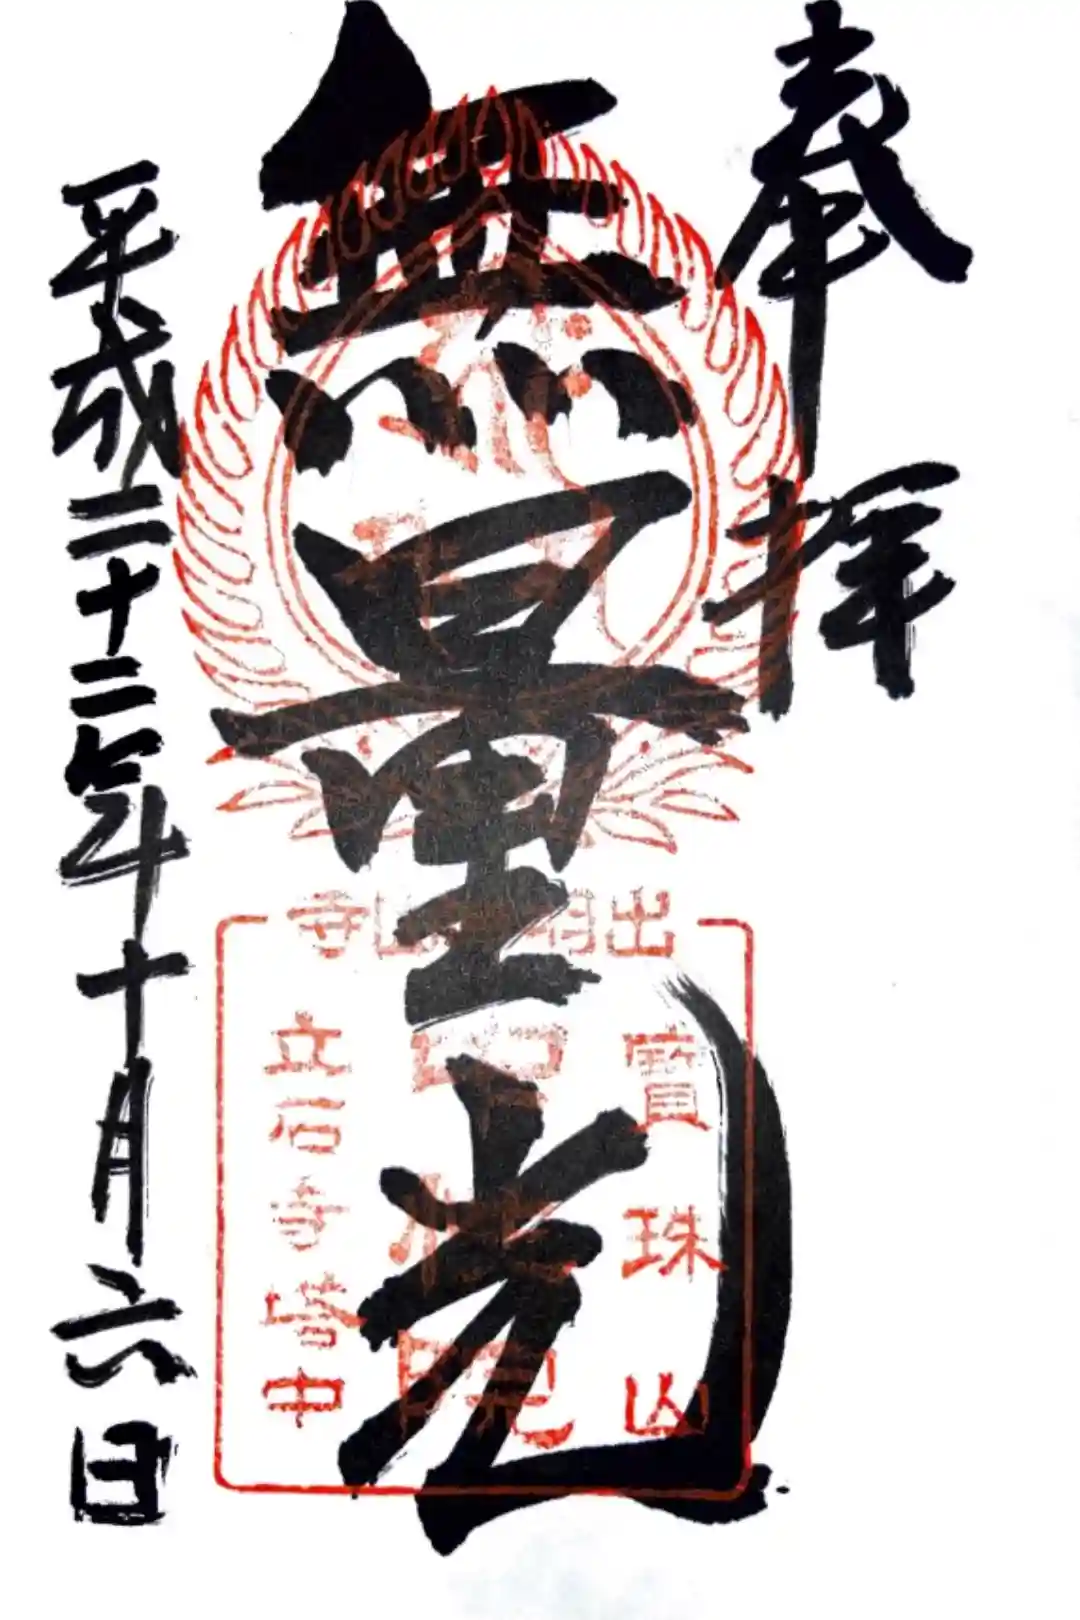 奉拝
無量光
平成二十二年十月六日
出羽山寺
寶珠山
性相院
立石寺塔中